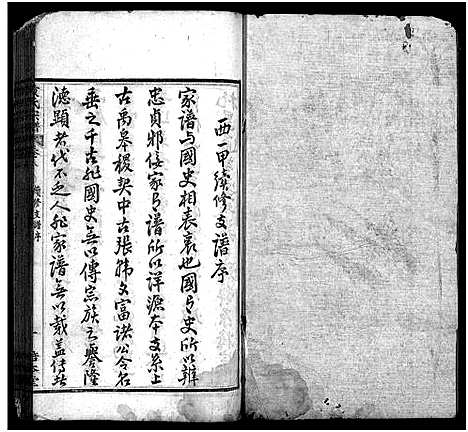 西一甲續修支譜序
家譜與國史相表裏也國有史所以辨
忠貞邪佞家有譜所以詳源本支系上
古禹皋稷契中古張韓文富諸公令名
垂之千古非國史無以傳宗族之譽隆
德顯者代不乏人非家譜無以載蓋傳
氏宗譜
續修支譜序
一